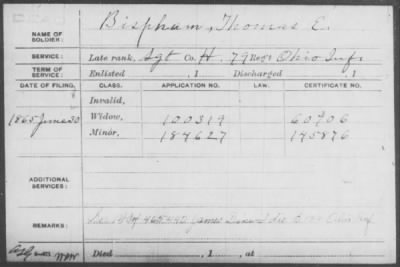 NAME OF SOLDIER: Bispham, Thomas E.
SERVICE: Late rank, Sgt Co. H. 79 Reg't Ohio Inf.
TERM OF SERVICE: Enlisted , 1 Discharged , 1
DATE OF FILING. CLASS. APPLICATION NO. LAW. CERTIFICATE NO.
Invalid,
1865 June 30 Widow, 100319 60706
Minor, 184627 145876
ADDITIONAL SERVICES:
REMARKS: James
Died , 1 , at